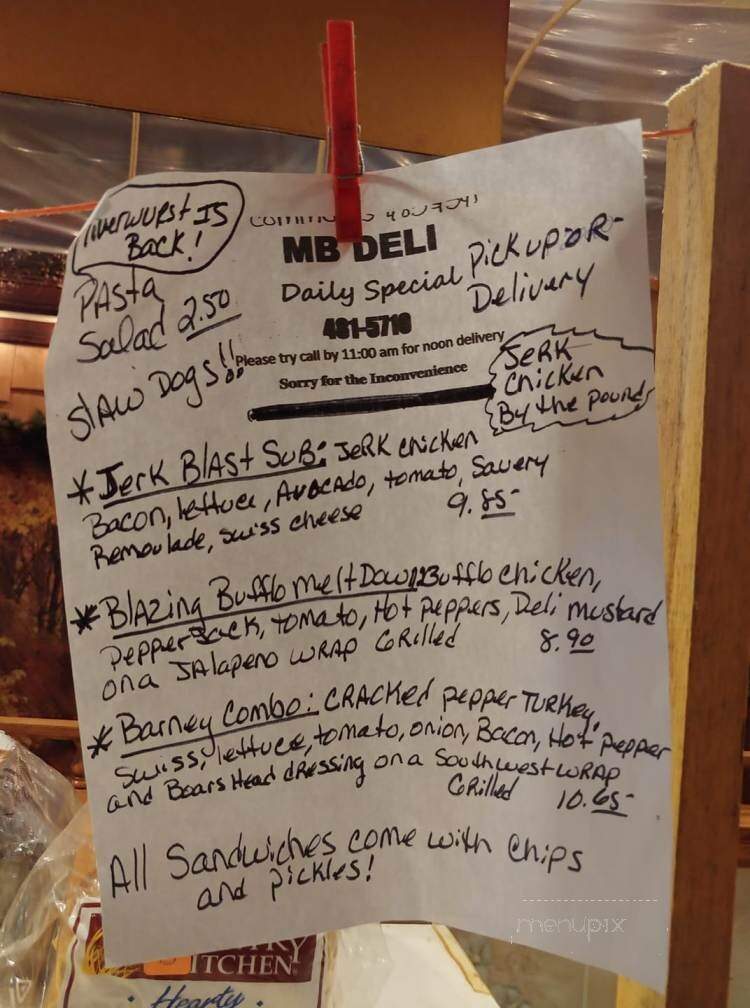 Liverwurst IS
Back!
MB DELI
Daily Special
Pick up or
Delivery
481-5710
Please try call by 11:00 am for noon delivery
Sorry for the Inconvenience
Pasta
Salad 2.50
Slaw Dogs!!
Jerk
Chicken
By the pound
* Jerk Blast Sub: Jerk chicken
Bacon, lettuce, Avocado, tomato, Savery
Remoulade, swiss cheese 9.85
* Blazing Bufflo melt Down: Bufflo chicken,
Pepper Jack, tomato, Hot peppers, Deli mustard
on a Jalapeno wrap Grilled 8.90
* Barney Combo: Cracked pepper Turkey,
Swiss, lettuce, tomato, onion, Bacon, Hot pepper
and Boars Head dressing on a Southwest wrap
Grilled 10.65
All Sandwiches come with Chips
and pickles!
menupix
ITCHEN
Hearty